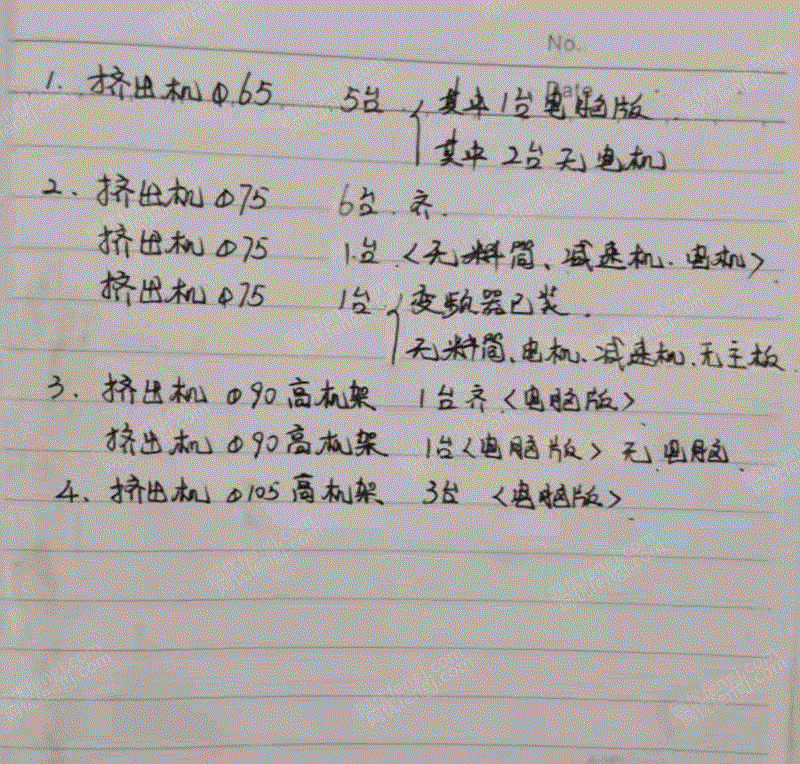 No.
Date
1. 挤出机 Φ65 5台 { 其中1台电脑版
其中2台无电机
2. 挤出机 Φ75 6台. 齐.
挤出机 Φ75 1台 <无料筒、减速机. 电机>
挤出机 Φ75 1台 { 变频器已装.
无料筒、电机、减速机、无主板
3. 挤出机 Φ90高机架 1台齐<电脑版>
挤出机 Φ90高机架 1台<电脑版>无电脑.
4. 挤出机 Φ105高机架 3台 <电脑版>